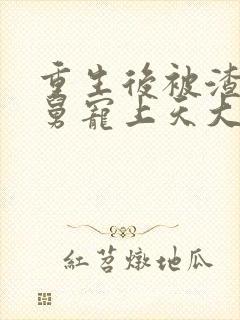 重生後被渣
舅寵上天大
紅苕燉地瓜